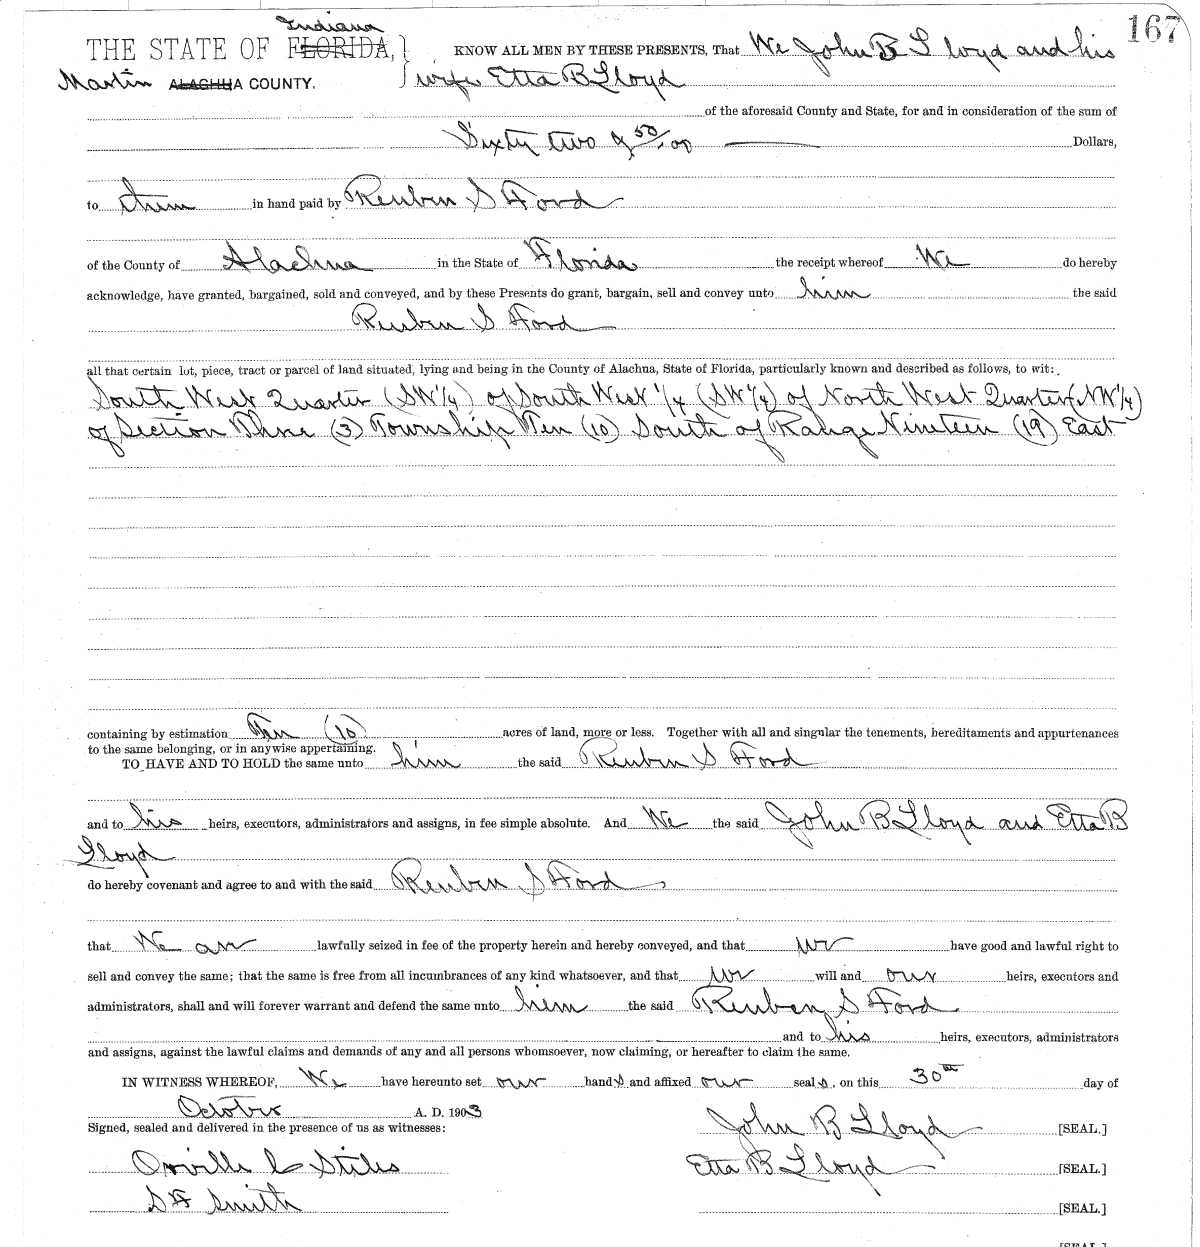 167
Indiana
THE STATE OF FLORIDA, } KNOW ALL MEN BY THESE PRESENTS, That We John B Lloyd and his
Martin ALACHUA COUNTY. wife Etta B Lloyd
of the aforesaid County and State, for and in consideration of the sum of
Sixty two & 50/00 Dollars,
to them in hand paid by Reuben S Ford
of the County of Alachua in the State of Florida the receipt whereof We do hereby
acknowledge, have granted, bargained, sold and conveyed, and by these Presents do grant, bargain, sell and convey unto him the said
Reuben S Ford
all that certain lot, piece, tract or parcel of land situated, lying and being in the County of Alachua, State of Florida, particularly known and described as follows, to wit:
South West Quarter (SW 1/4) of South West 1/4 (SW 1/4) of North West Quarter (NW 1/4)
of Section Three (3) Township Ten (10) South of Range Nineteen (19) East
containing by estimation Ten (10) acres of land, more or less. Together with all and singular the tenements, hereditaments and appurtenances
to the same belonging, or in anywise appertaining.
TO HAVE AND TO HOLD the same unto him the said Reuben S Ford
and to his heirs, executors, administrators and assigns, in fee simple absolute. And We the said John B Lloyd and Etta B
Lloyd
do hereby covenant and agree to and with the said Reuben S Ford
that We are lawfully seized in fee of the property herein and hereby conveyed, and that we have good and lawful right to
sell and convey the same; that the same is free from all incumbrances of any kind whatsoever, and that we will and our heirs, executors and
administrators, shall and will forever warrant and defend the same unto him the said Reuben S Ford
and to his heirs, executors, administrators
and assigns, against the lawful claims and demands of any and all persons whomsoever, now claiming, or hereafter to claim the same.
IN WITNESS WHEREOF, We have hereunto set our hands and affixed our seals, on this 30th day of
October A. D. 1903
Signed, sealed and delivered in the presence of us as witnesses: John B Lloyd [SEAL.]
Orville C Stiles Etta B Lloyd [SEAL.]
S F Smith [SEAL.]